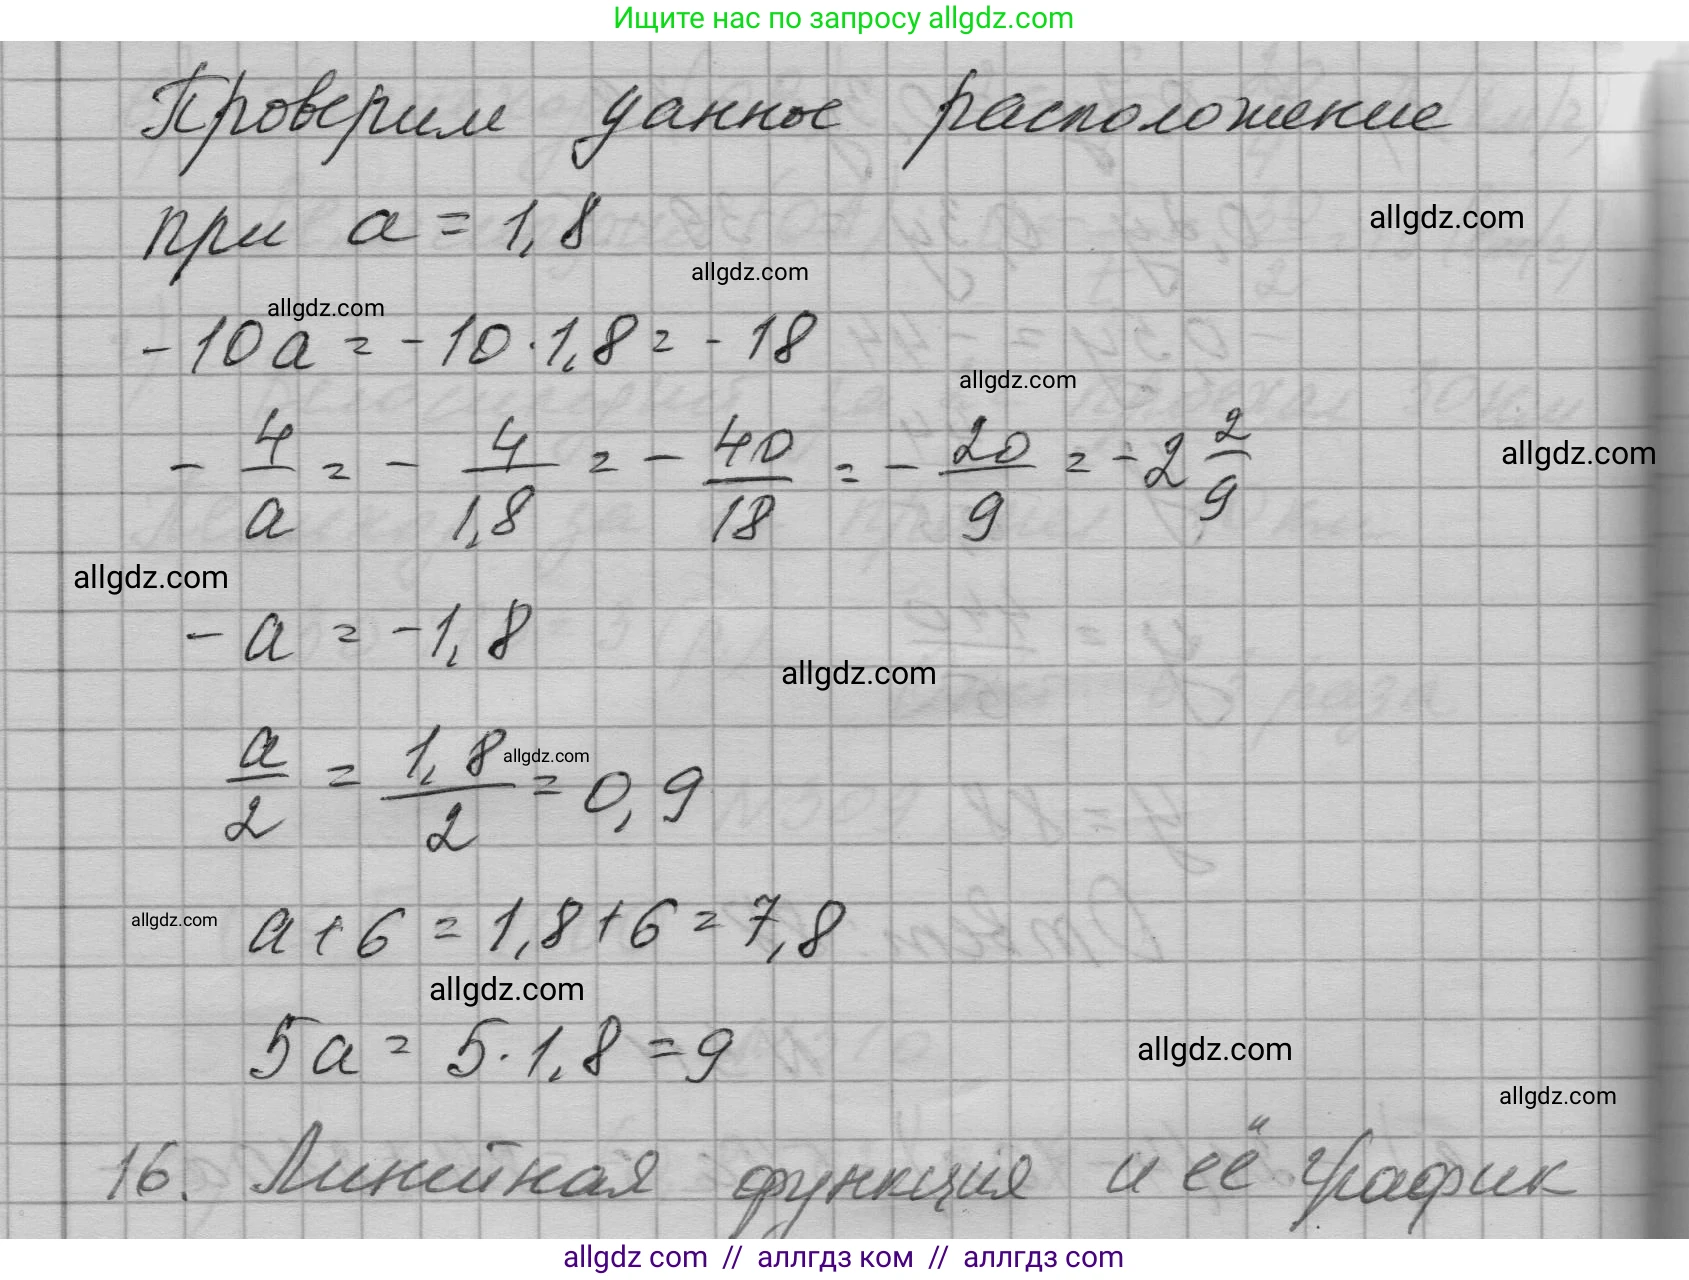 Ищите нас по запросу allgdz.com
Проверим данное расположение
при a = 1,8
allgdz.com
allgdz.com
allgdz.com
-10a = -10·1,8 = -18
allgdz.com
- 4/a = - 4/1,8 = - 40/18 = - 20/9 = -2 2/9
allgdz.com
allgdz.com
-a = -1,8
allgdz.com
a/2 = 1,8/2 = 0,9
allgdz.com
allgdz.com
a+6 = 1,8+6 = 7,8
allgdz.com
5a = 5·1,8 = 9
allgdz.com
allgdz.com
16. Линейная функция и её график
allgdz com // аллгдз ком // allgdz.com